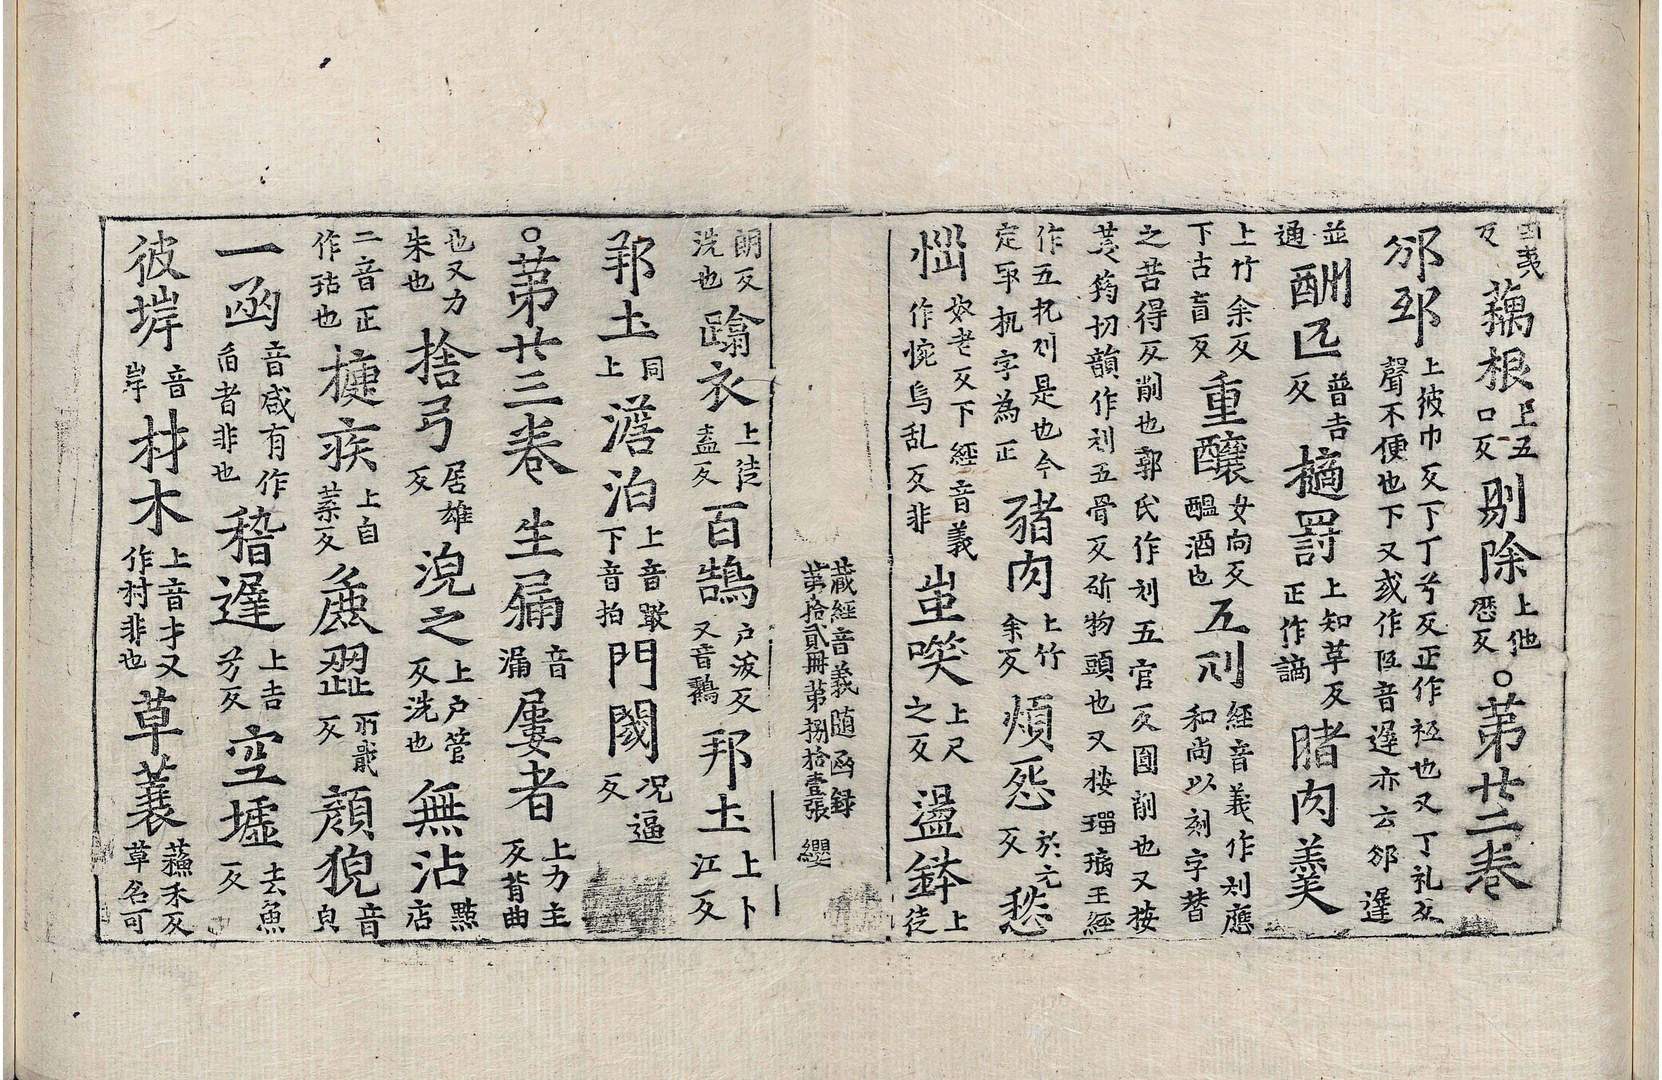 四夷反藕根上五口反剔除上他歷反○第廿二卷
邠郅上彼巾反下丁兮反正作衹也又丁礼反聲不便也下又或作互音遲亦云邠遲
並通酬匹普吉反擿罸上知草反正作謫䐗肉羹
上竹余反下古盲反重釀女向反醖酒也五刖經音義作刓應和尚以刻字替
之苦得反削也郭氏作刓五官反圓削也又按蒖筠切韻作刓五骨反斫物頭也又按瑠璃王經
作五扤刖是也今定取扤字為正豬肉上竹余反煩惌於元反愁
惱奴老反下經音義作惋烏乱反非蚩唉上尺之反盪鉢上徒
藏經音義随函録
第拾貳冊第捌拾壹張 纓
朗反洗也翳衣上徒盍反百鵠户沃反又音鶴邦土上卜江反
邦土同上澹泊上音淡下音拍門閾况逼反
○第廿三卷生屚音漏屢者上力主反莆曲
也又力朱也捨弓居雄反涀之上户管反洗也無沾點店
二音正作玷也捷疾上自葉反麁歰所戢反顔貌音皃
一函音咸有作㐭者非也稽遲上吉兮反空墟去魚反
彼垾音岸材木上音才又作村非也草蓑蘓禾反草名可